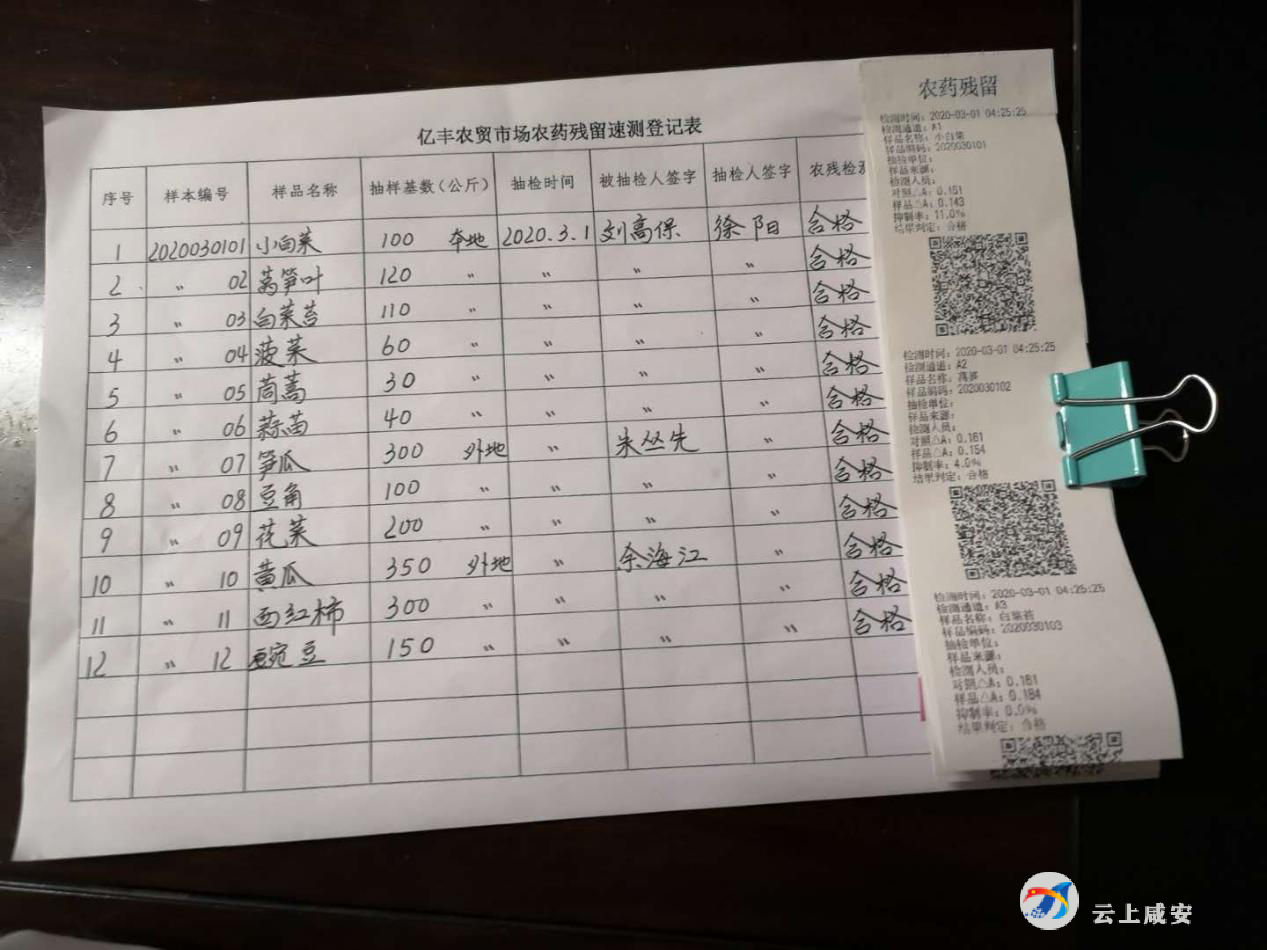 亿丰农贸市场农药残留速测登记表
序号 样本编号 样品名称 抽样基数（公斤） 抽检时间 被抽检人签字 抽检人签字 农残检
1 2020030101 小白菜 100 本地 2020.3.1 刘高保 徐阳 合格
2 〃 02 莴笋叶 120 〃 〃 〃 〃 合格
3 〃 03 白菜苔 110 〃 〃 〃 〃 合格
4 〃 04 菠菜 60 〃 〃 〃 〃 合格
5 〃 05 茼蒿 30 〃 〃 〃 〃 合格
6 〃 06 蒜苗 40 〃 〃 〃 〃 合格
7 〃 07 笋瓜 300 外地 〃 朱丛先 〃 合格
8 〃 08 豆角 100 〃 〃 〃 〃 合格
9 〃 09 花菜 200 〃 〃 〃 〃 合格
10 〃 10 黄瓜 350 外地 〃 余海江 〃 合格
11 〃 11 西红柿 300 〃 〃 〃 〃 合格
12 〃 12 豌豆 150 〃 〃 〃 〃 合格
农药残留
检测时间：2020-03-01 04:25:25
检测通道：A1
样品名称：小白菜
样品编码：2020030101
抽检单位：
样品来源：
检测人员：
对照△A：0.161
样品△A：0.143
抑制率：11.0%
结果判定：合格
检测时间：2020-03-01 04:25:25
检测通道：A2
样品名称：莴笋
样品编码：2020030102
抽检单位：
样品来源：
检测人员：
对照△A：0.161
样品△A：0.154
抑制率：4.0%
结果判定：合格
检测时间：2020-03-01 04:25:25
检测通道：A3
样品名称：白菜苔
样品编码：2020030103
抽检单位：
样品来源：
检测人员：
对照△A：0.161
样品△A：0.164
抑制率：0.0%
结果判定：合格
云上咸安